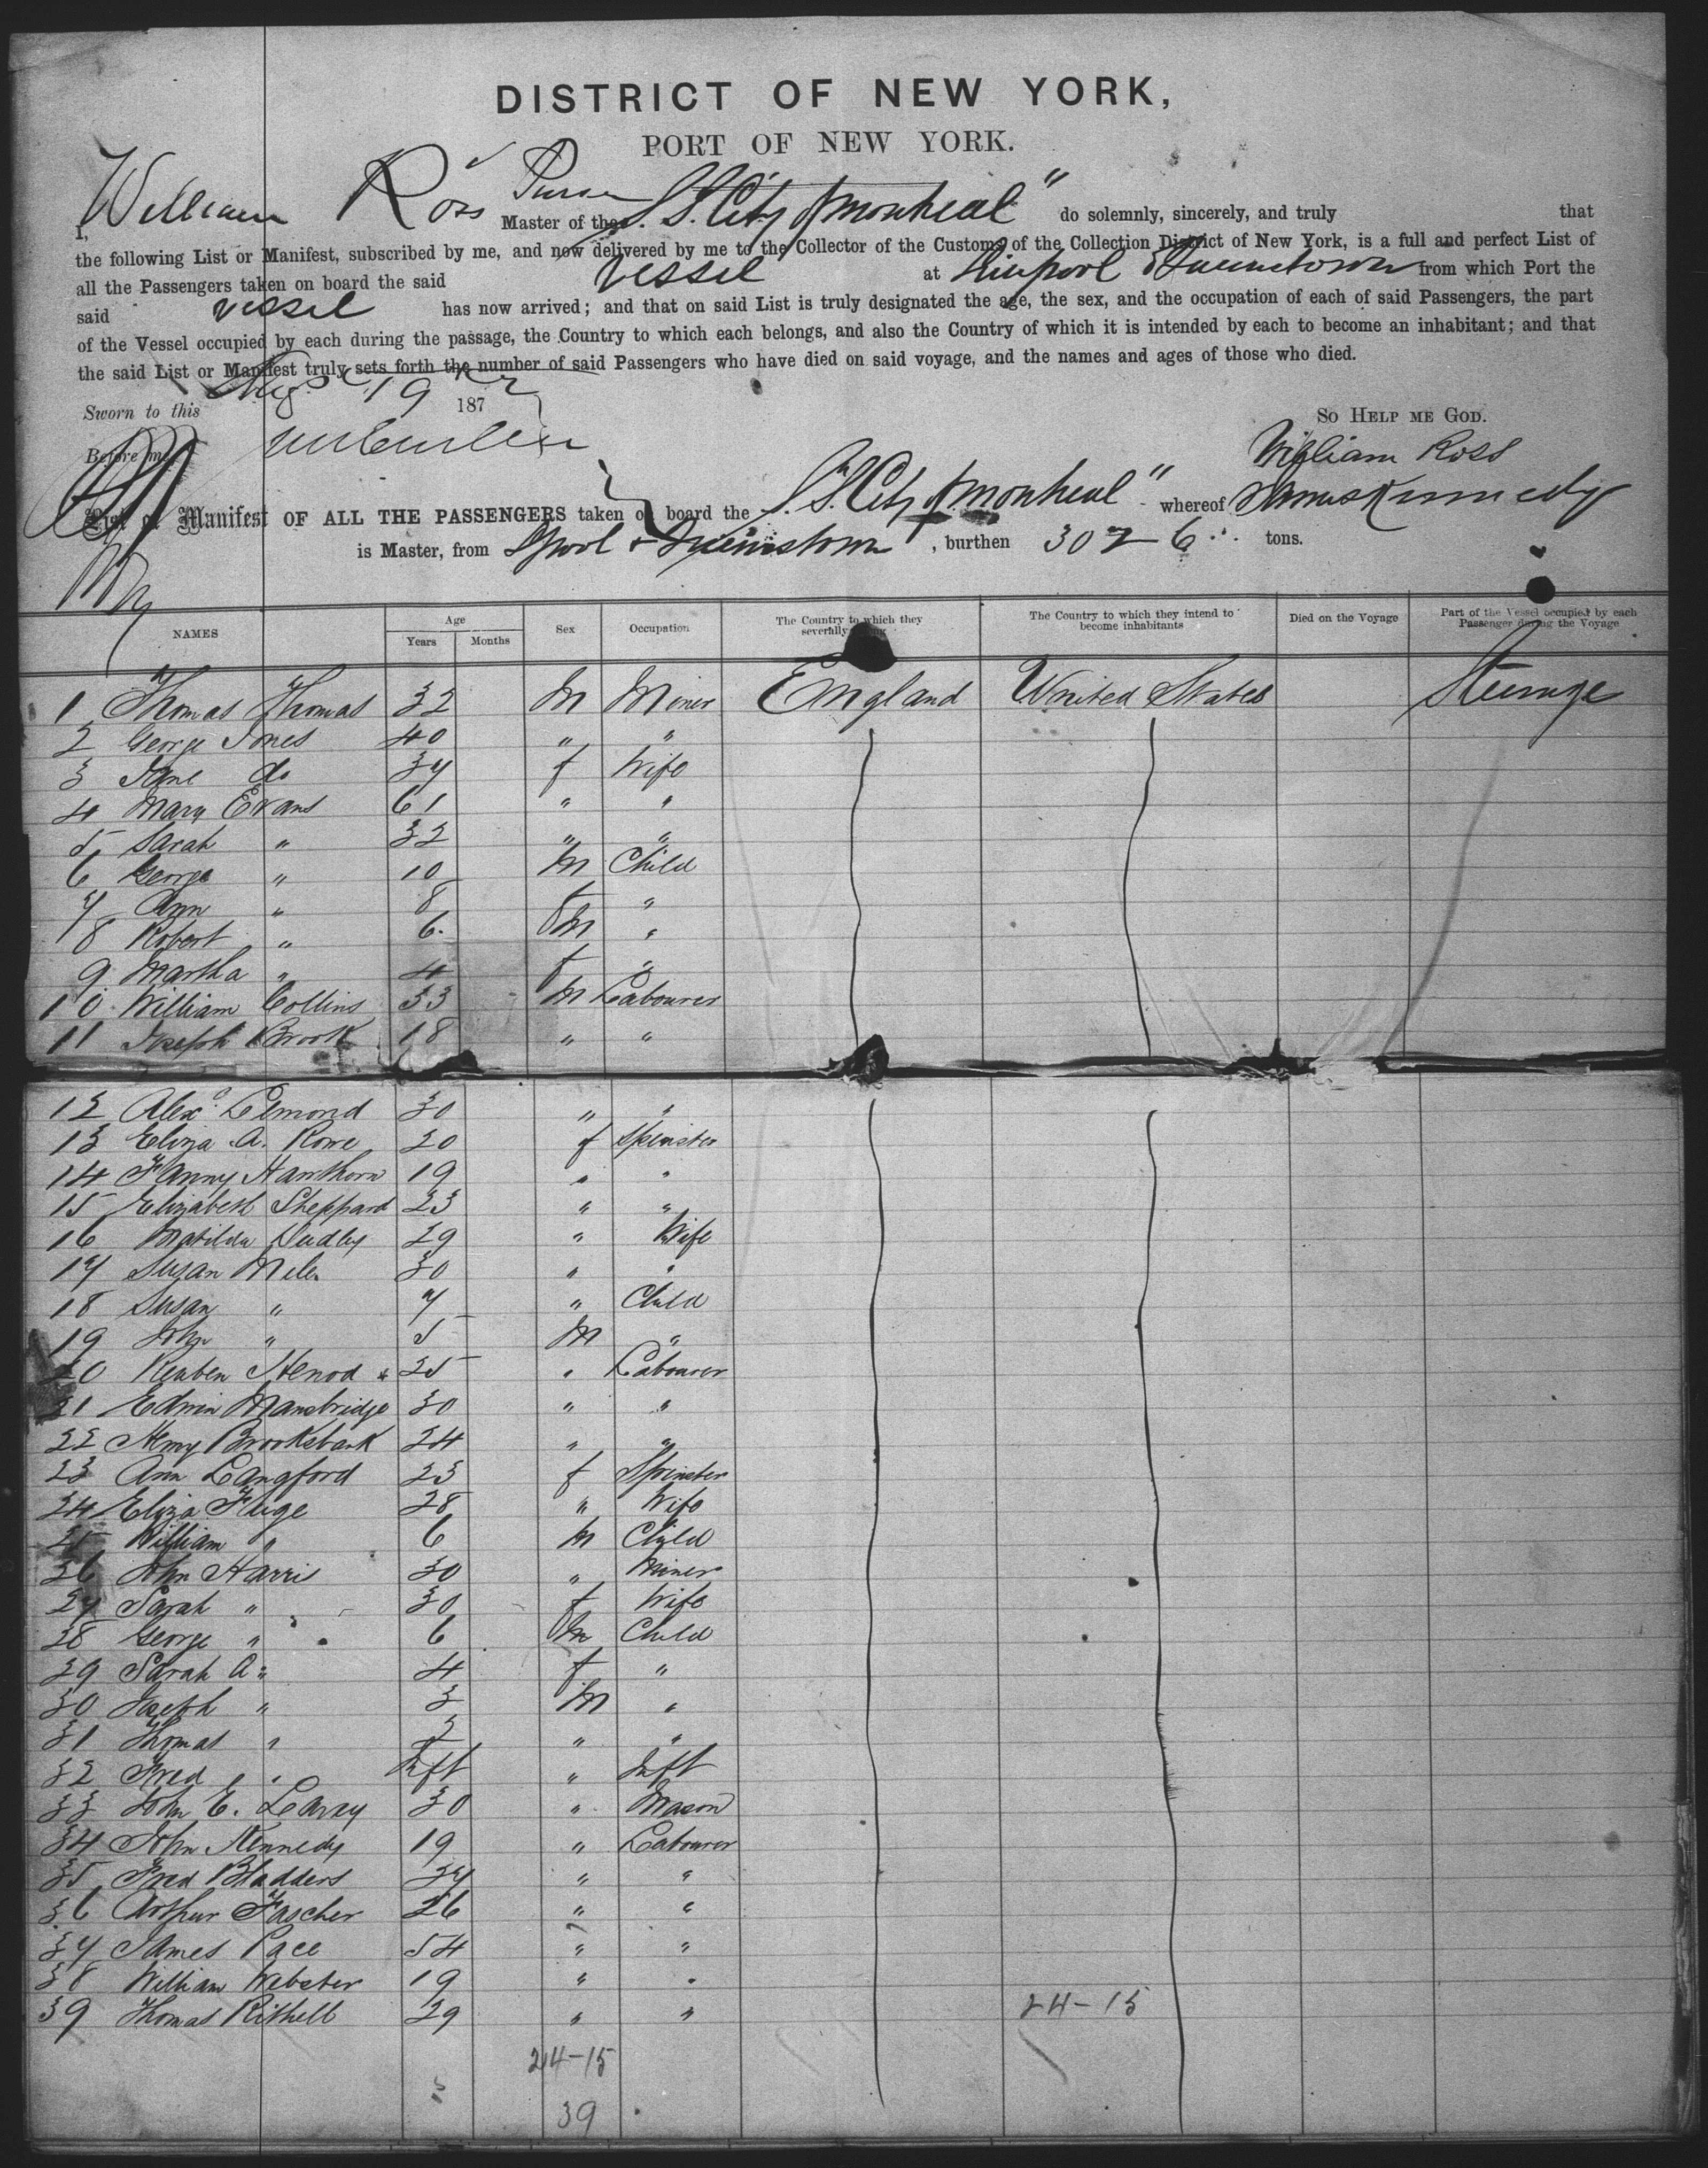 DISTRICT OF NEW YORK,
PORT OF NEW YORK.
I, William Ross Purser Master of the S.S. City of Montreal" do solemnly, sincerely, and truly that
the following List or Manifest, subscribed by me, and now delivered by me to the Collector of the Customs of the Collection District of New York, is a full and perfect List of
all the Passengers taken on board the said Vessel at Liverpool & Queenstown from which Port the
said vessel has now arrived; and that on said List is truly designated the age, the sex, and the occupation of each of said Passengers, the part
of the Vessel occupied by each during the passage, the Country to which each belongs, and also the Country of which it is intended by each to become an inhabitant; and that
the said List or Manifest truly sets forth the number of said Passengers who have died on said voyage, and the names and ages of those who died.
Sworn to this Aug 19 187
So Help me God.
Before me
William Ross
List or Manifest OF ALL THE PASSENGERS taken on board the S.S. City of Montreal" whereof James Kennedy
is Master, from Lpool & Queenstown, burthen 3026 tons.
NAMES Age Years Months Sex Occupation The Country to which they severally The Country to which they intend to become inhabitants Died on the Voyage Part of the Vessel occupied by each Passenger during the Voyage
1 Thomas Thomas 32 M Miner England United States Steerage
2 George Jones 40 " "
3 Jane do 34 f Wife
4 Mary Evans 61 " "
5 Sarah " 32 " "
6 George " 10 M Child
7 Ann " 8 f "
8 Robert " 6 M "
9 Martha " 4 f "
10 William Collins 33 M Labourer
11 Joseph Brook 18 " "
12 Alex Lemond 30 " "
13 Eliza A. Rowe 20 f Spinster
14 Fanny Hawthorn 19 " "
15 Elizabeth Sheppard 23 " "
16 Matilda Dudley 29 " Wife
17 Susan 30 " "
18 Susan " 7 " Child
19 John " 5 M "
20 Reuben 25 " Labourer
21 Edwin Mansbridge 30 " "
22 Henry Brooksbank 24 " "
23 Ann Langford 23 f Spinster
24 Eliza 28 " Wife
25 William " 6 M Child
26 John Harris 30 " Miner
27 Sarah " 30 f Wife
28 George " 6 M Child
29 Sarah A " 4 f "
30 Joseph " 3 M "
31 Thomas " 2 " "
32 Fred " Inft " Inft
33 John E. 30 " Mason
34 John Kennedy 19 " Labourer
35 Fred Bladders 34 " "
36 Arthur Fascher 26 " "
37 James Pace 54 " "
38 William Webster 19 " "
39 Thomas Rithell 29 " "
24-15
24-15
39